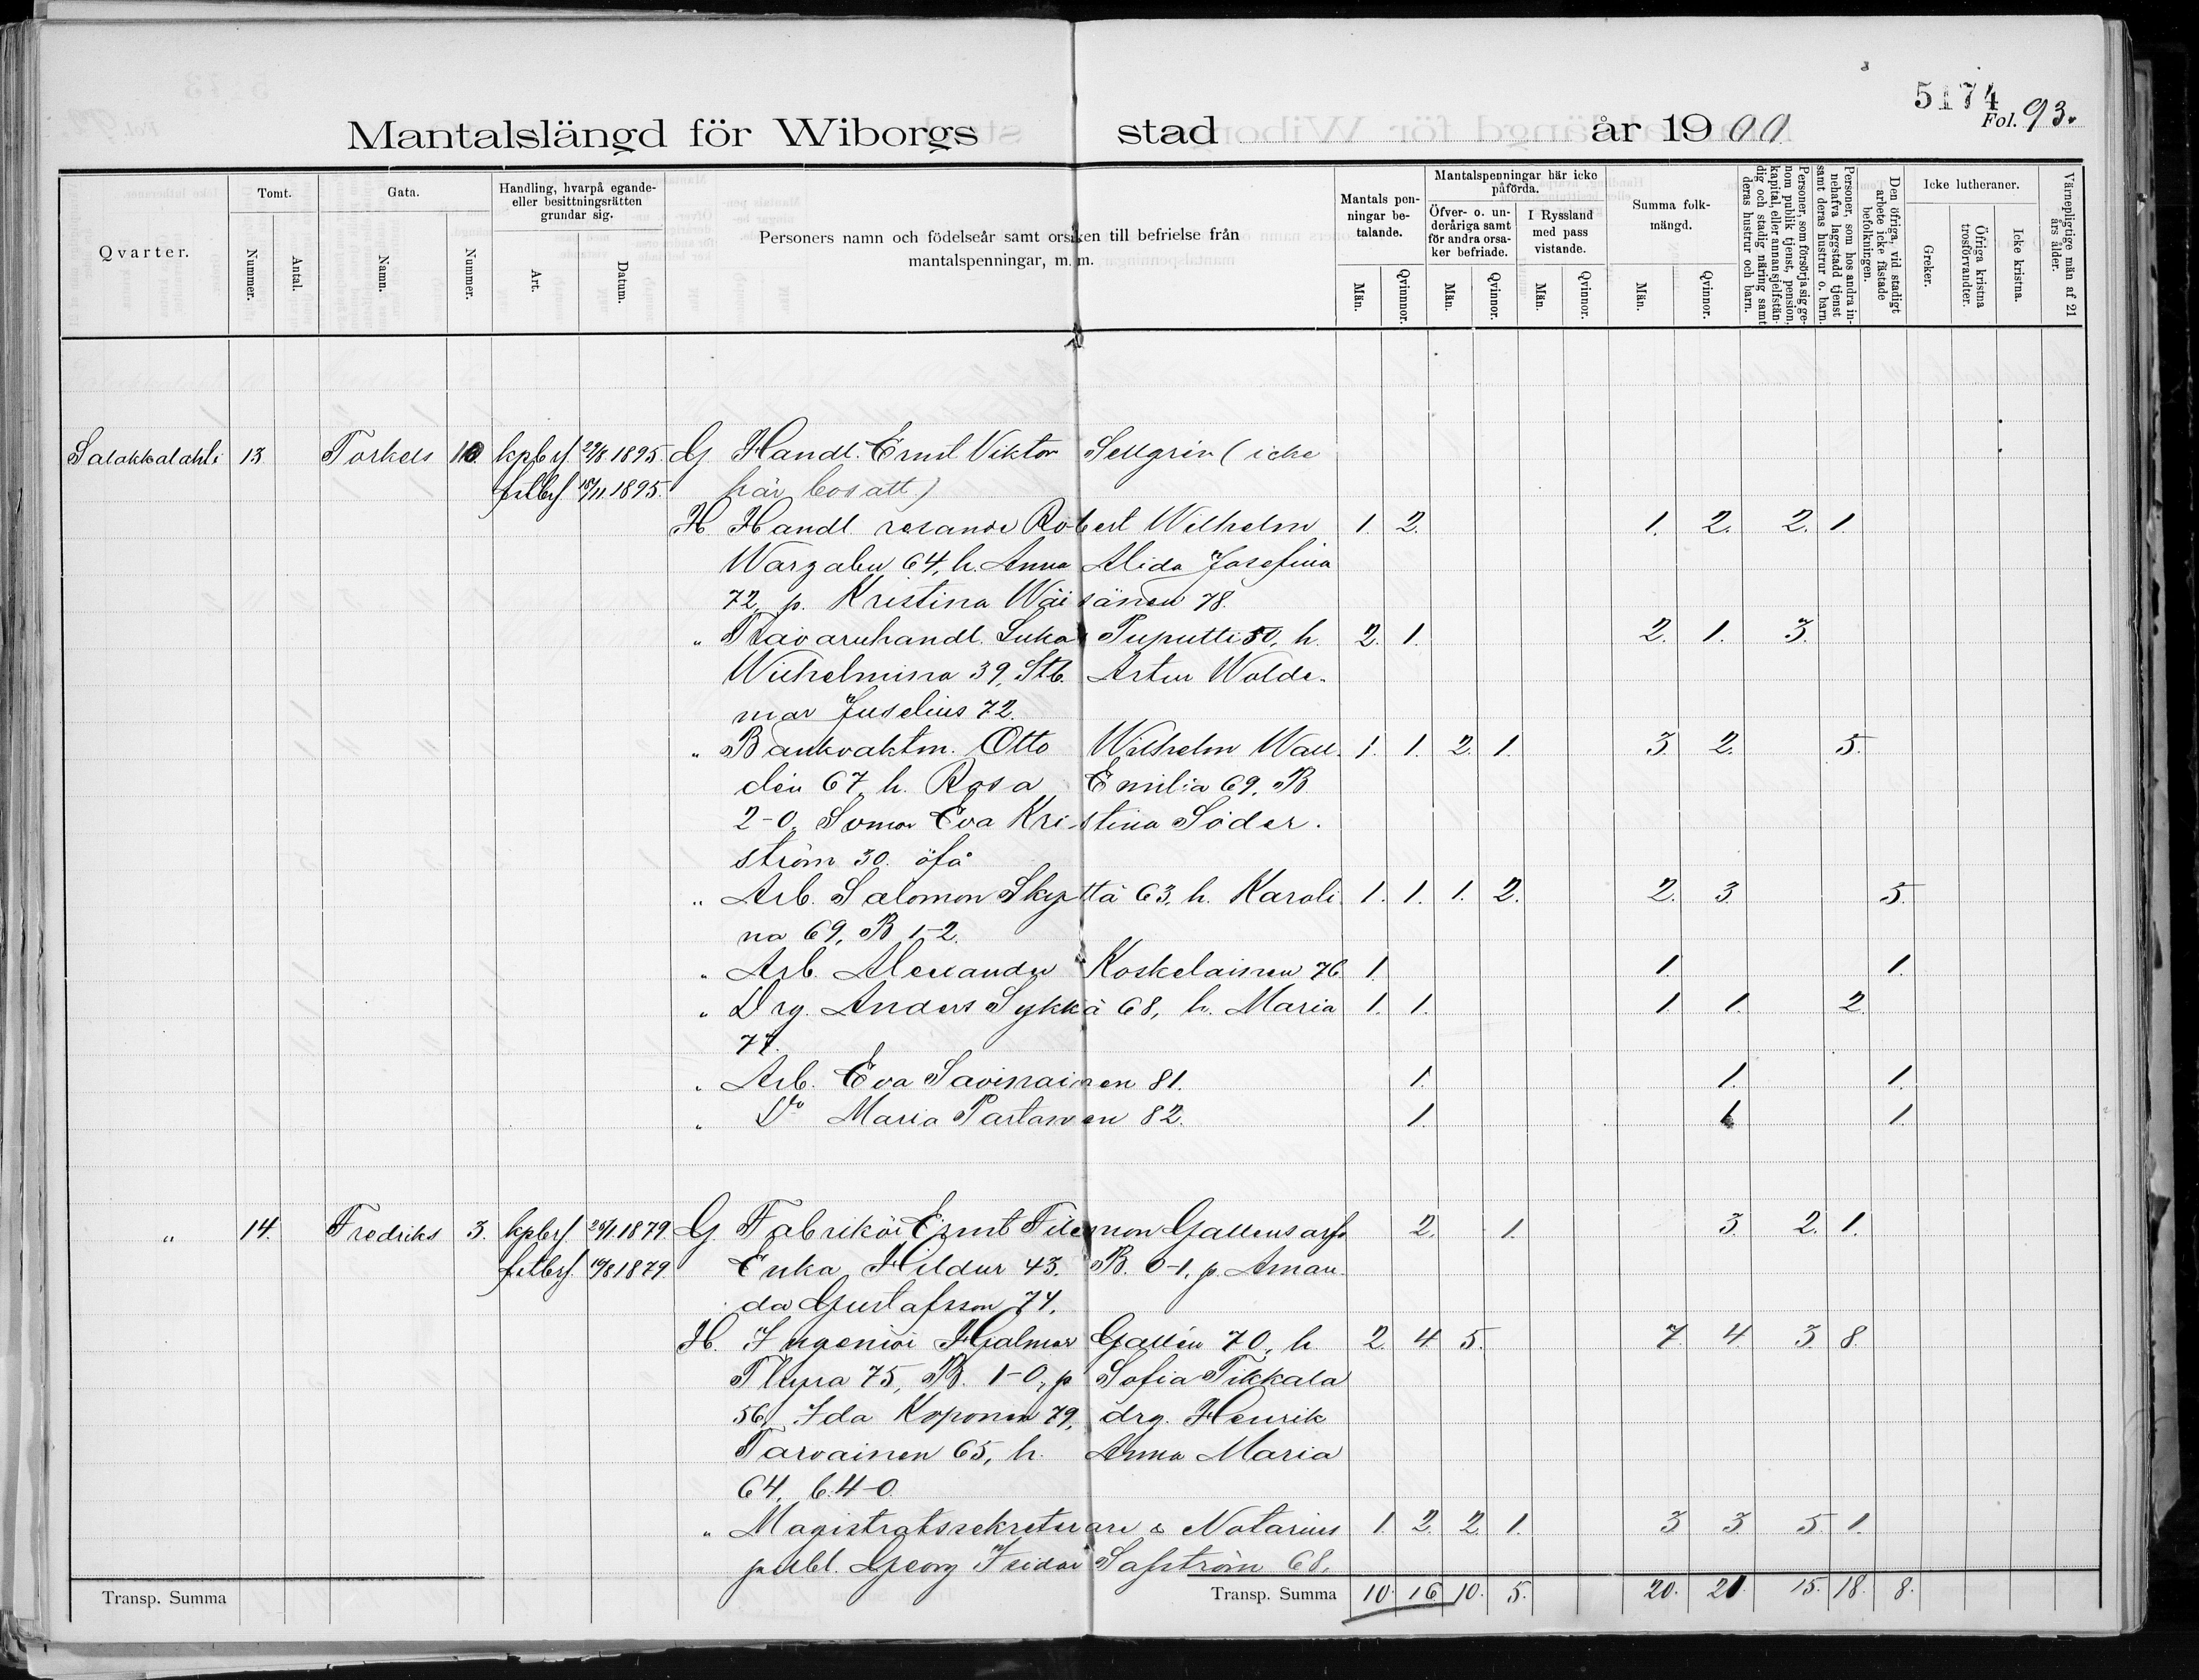 5174
Fol. 93.
Mantalslängd för Wiborgs stad år 1900
Qvarter.
Tomt.
Nummer.
Antal.
Gata.
Namn.
Nummer.
Handling, hvarpå egande- eller besittningsrätten grundar sig.
Art.
Datum.
Personers namn och födelseår samt orsaken till befrielse från mantalspenningar, m. m.
Mantals penningar betalande.
Män.
Qvinnor.
Mantalspenningar här icke påförda.
Öfver- o. underåriga samt för andra orsaker befriade.
Män.
Qvinnor.
I Ryssland med pass vistande.
Män.
Qvinnor.
Summa folkmängd.
Män.
Qvinnor.
Personer, som försörja sig genom publik tjenst, pension, kapital, eller annan sjelfständig och stadig näring samt deras hustrur och barn.
Personer, som hos andra innehafva laggstadd tjenst samt deras hustrur o. barn.
Den öfriga, vid stadigt arbete icke fästade befolkningen.
Icke lutheraner.
Greker.
Öfriga kristna trosförvandter.
Icke kristna.
Värnepligtige män af 21 års ålder.
Salakkalahti 13 Torkels 10. kpbrf 29/8 1895. G. Handl. Ernst Viktor Sellgrén (icke
fstbrf. 18/11 1895. här bosatt)
H Handl resande Robert Wilhelm 1. 2. 1. 2. 2. 1.
64, h. Anna Alida Josefina
72, p. Kristina Wäisänen 78.
" Trävaruhandl. Lukas Puputti 50, h. 2. 1. 2. 1. 3.
Wilhelmina 39, Stb. Artur Walde-
mar Juselius 72.
" Bankvaktm. Otto Wilhelm Wall- 1. 1. 2. 1. 3. 2. 5.
dén 67, h. Rosa Emilia 69. B
2-0, Eva Kristina Söder-
ström 30. öfå
" Arb. Salomon Skyttä 63, h. Karoli- 1. 1. 1. 2. 2. 3. 5.
na 69, B 1-2.
" Arb. Alexander Koskelainen 76 1. 1. 1.
" Drg. Anders Sykkä 68, h. Maria 1. 1. 1. 1. 2.
77.
" Arb. Eva Savinainen 81. 1. 1. 1.
" Do Maria Partanen 82. 1. 1. 1.
" 14. Fredriks 3. kpbrf 25/1 1879 G. Fabrikör Ernst Filemon Galléns arfv. 2. 1. 3. 2. 1.
fstbrf. 19/8 1879. Enka Hildur 43. B. 0-1, p. Aman-
da Gustafsson 74.
H. Ingeniör Hjalmar Gallén 70, h. 2. 4. 5. 7. 4. 3. 8.
Thyra 75, B. 1-0, p Sofia Tikkala
56, Ida Koponen 79, drg. Henrik
Tarvainen 65, h. Anna Maria
64. b. 4-0.
" Magistratssekreterare & Notarius 1. 2. 2. 1. 3 3 5. 1.
publ. Georg Isidor Safström 68.
Transp. Summa
Transp. Summa 10. 16 10. 5. 20. 21. 15. 18. 8.